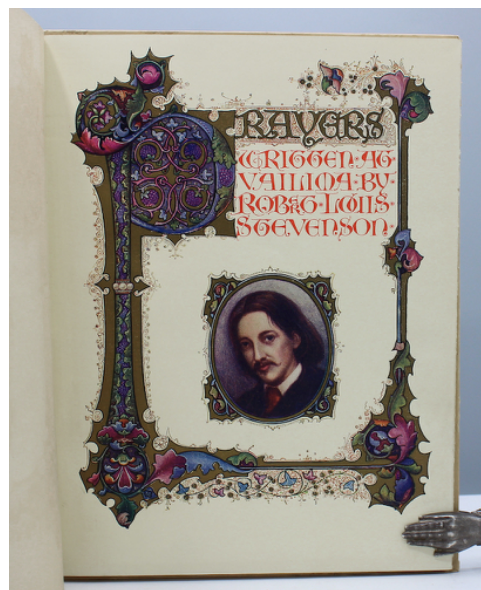 PRAYERS
WRITTEN·AT
VAILIMA·BY·
ROBERT·LOUIS·
STEVENSON·